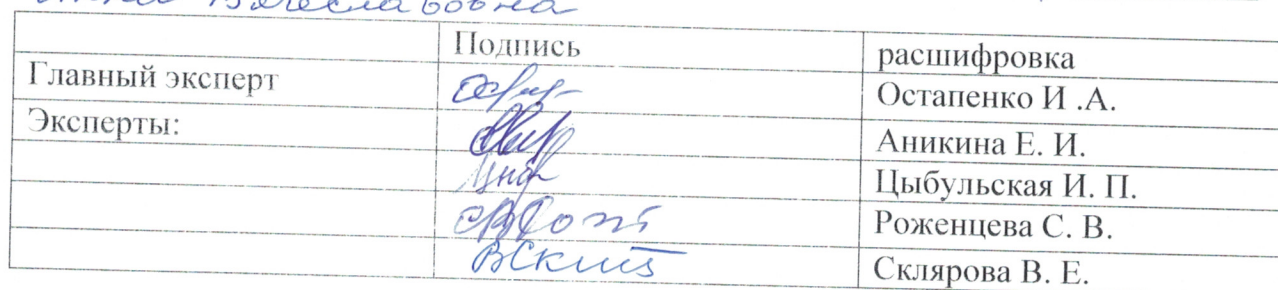 Вячеславовна
Подпись расшифровка
Главный эксперт Остапенко И .А.
Эксперты: Аникина Е. И.
Цыбульская И. П.
Роженцева С. В.
Склярова В. Е.